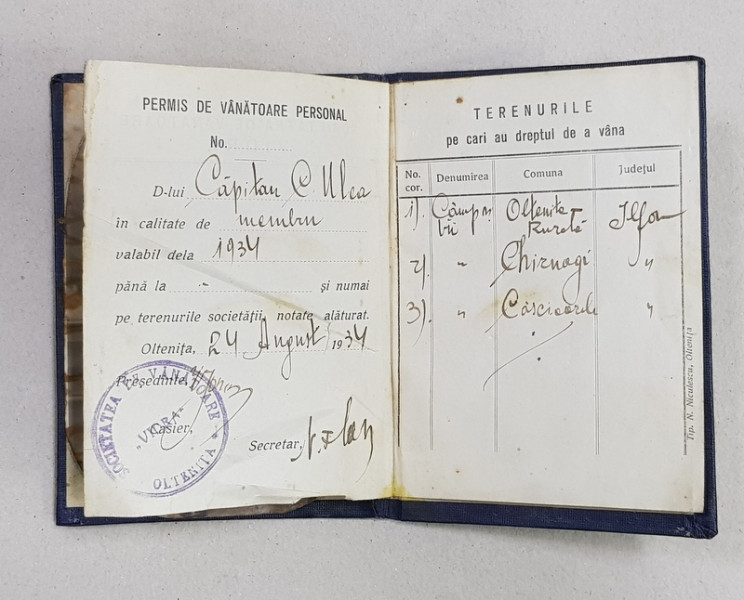 PERMIS DE VÂNĂTOARE PERSONAL
No.
D-lui Căpitan C. Ulea
în calitate de membru
valabil dela 1934
până la „ și numai
pe terenurile societății, notate alăturat.
Oltenița, 24 August 1934
Președinte,
Casier,
Secretar,
SOCIETATEA DE VÂNĂTOARE
OLTENIȚA
TERENURILE
pe cari au dreptul de a vâna
No. cor. Denumirea Comuna Județul
1). Oltenița Rurală Ilfov
2). „ Chirnogi „
3). „ Căscioarele „
Tip. N. Niculescu, Oltenița